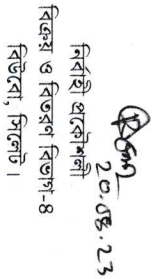 20.08.23
নির্বাহী প্রকৌশলী
বিক্রয় ও বিতরণ বিভাগ-৪
বিউবো, সিলেট।